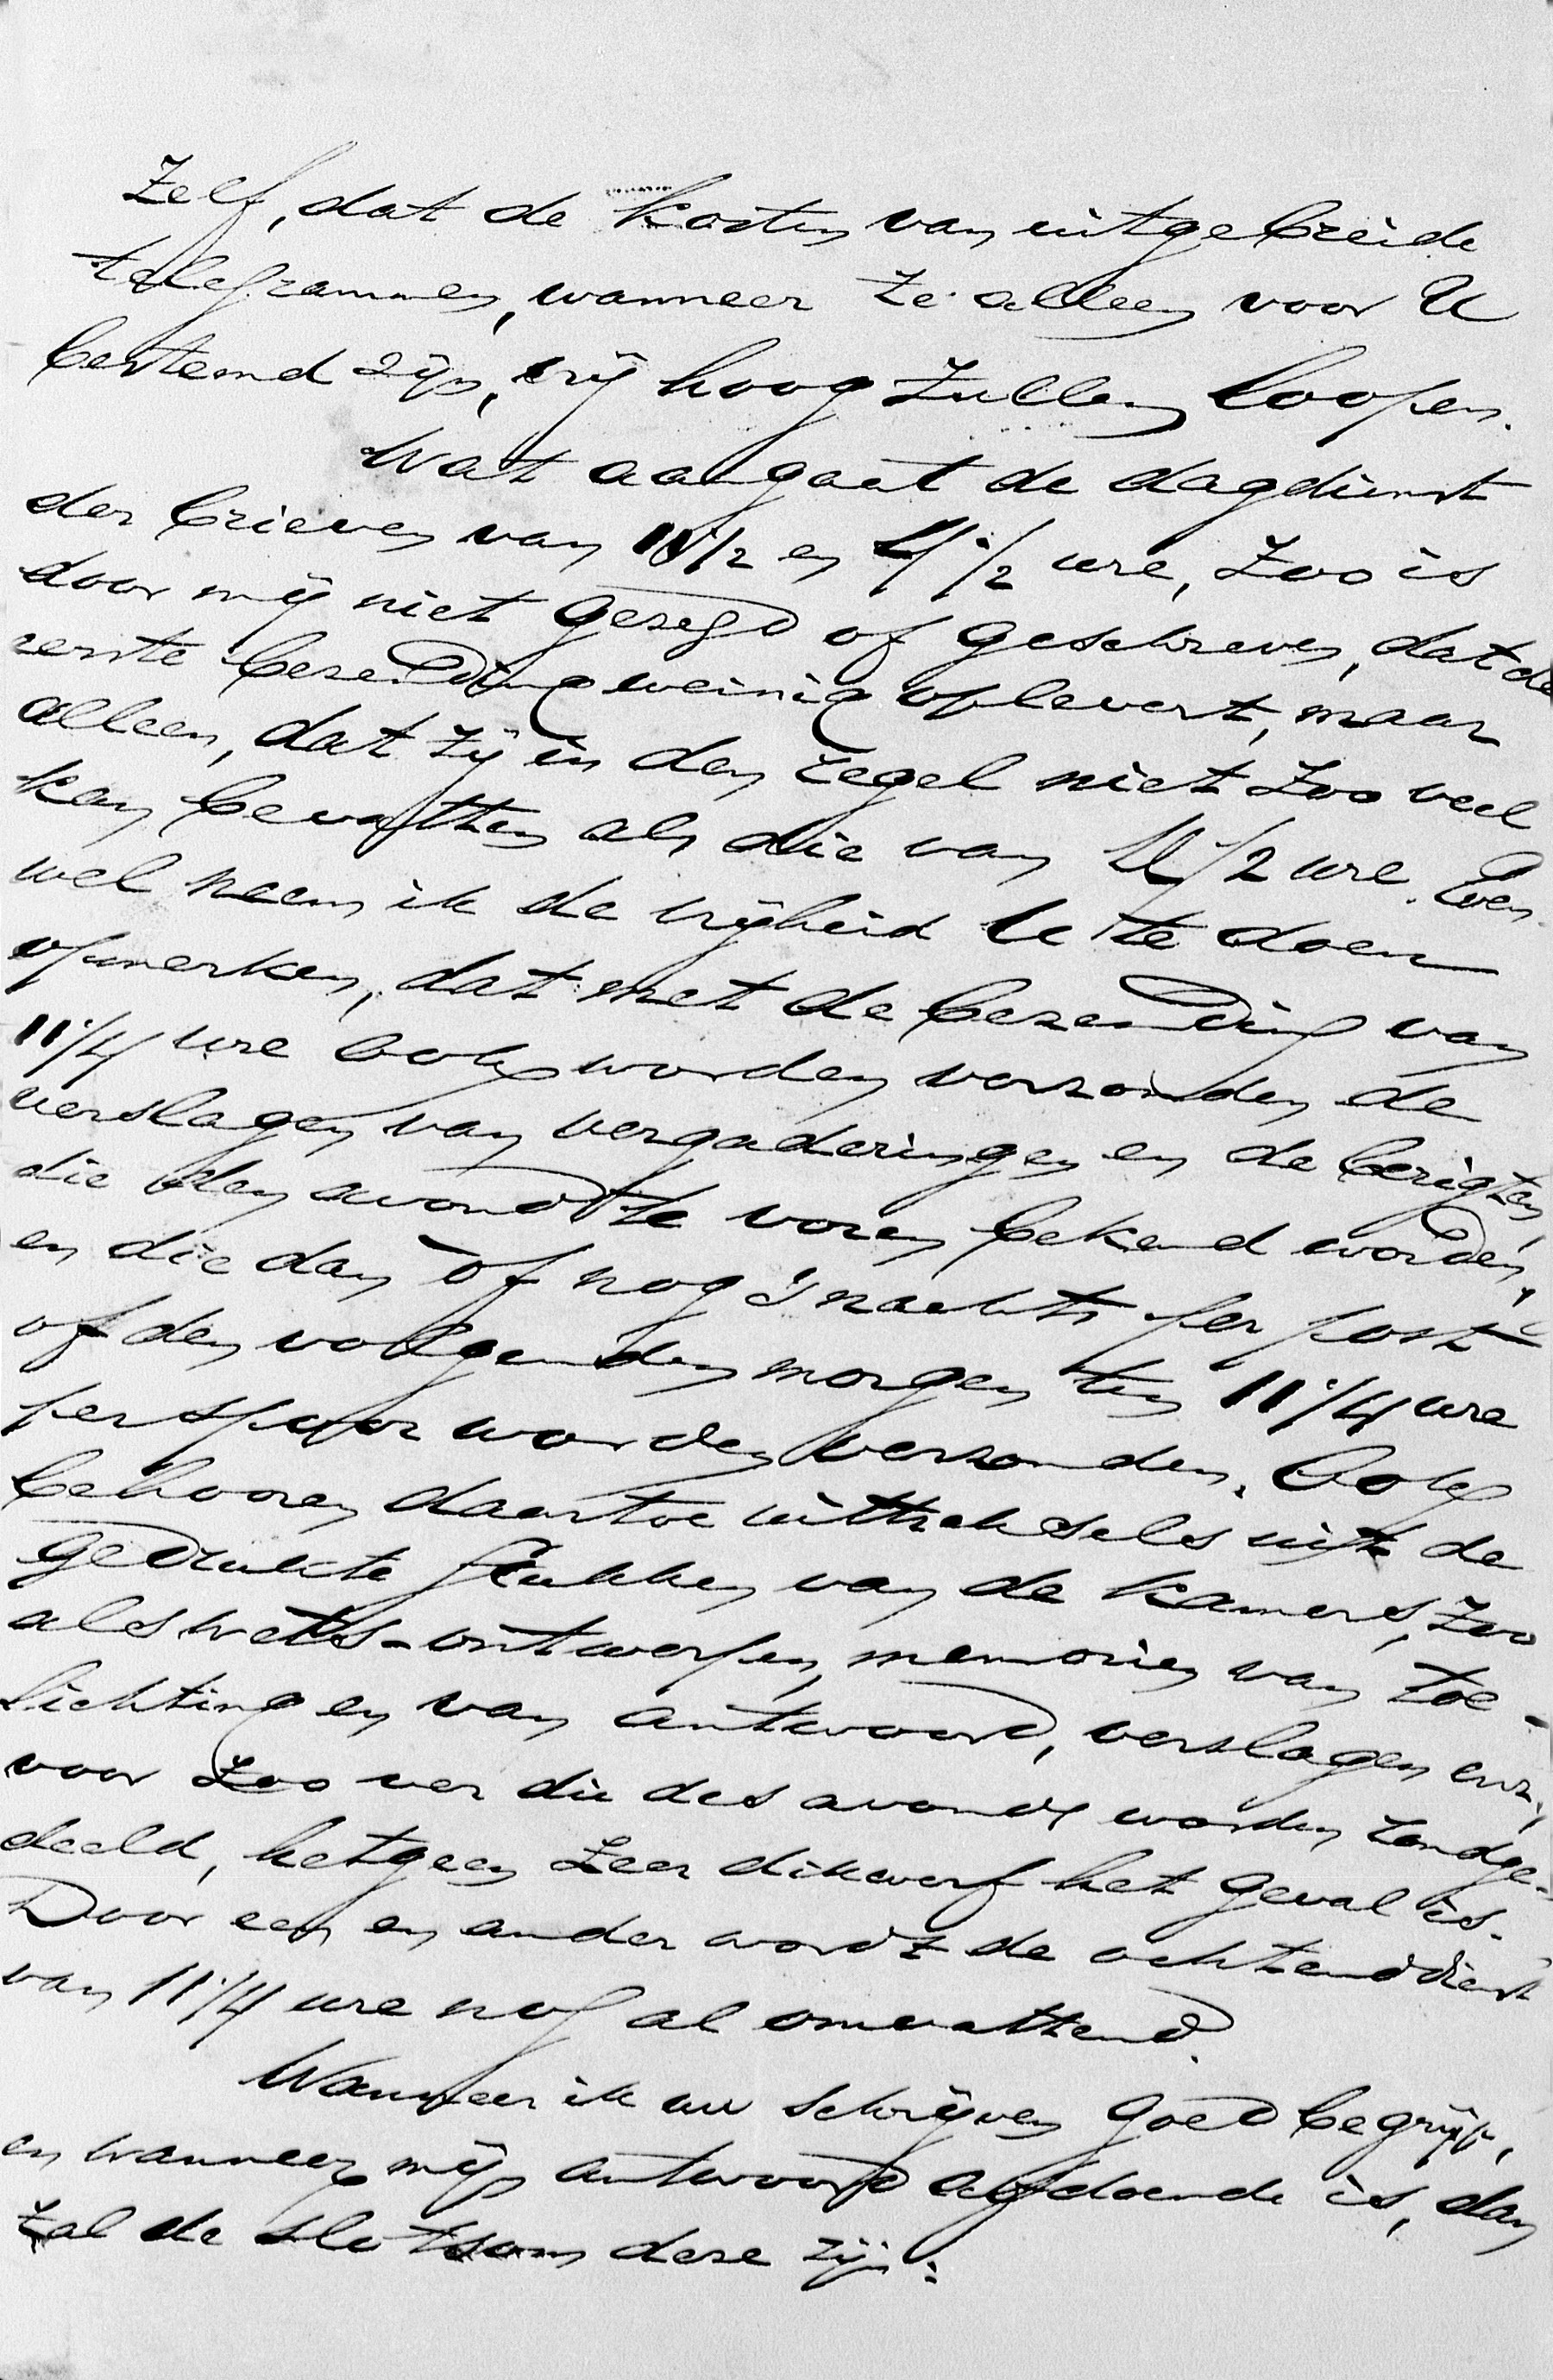 zelf, dat de kosten van uitgebreide
telegrammen, wanneer ze alleen voor U
bestemd zijn, vrij hoog zullen loopen.
Wat aangaat de dagdienst
der brieven van 11 1/2 en 4 1/2 ure, zoo is
door mij niet gezegd of geschreven, dat de
eerste bezending weinig oplevert, maar
alleen, dat zij in den regel niet zoo veel
kan bevatten als die van 4 1/2 ure. Even-
wel neem ik de vrijheid U te doen
opmerken, dat met de bezending van
11 1/4 ure ook worden verzonden de
verslagen van vergaderingen en de berigten,
die den avond te voren bekend worden,
en die dan òf nog 's nachts per post
òf den volgenden morgen ten 11 1/4 ure
per spoor worden verzonden. Ook
behooren daartoe uittreksels uit de
gedrukte stukken van de kamers, zoo
als wets-ontwerpen, memorien van toe-
lichting en van antwoord, verslagen enz.,
voor zoo ver die des avonds worden rondge-
deeld, hetgeen zeer dikwerf het geval is.
Door een en ander wordt de ochtenddienst
van 11 1/4 ure nog al omvattend.
Wanneer ik uw schrijven goed begrijp,
en wanneer mijn antwoord afdoende is, dan
zal de slotsom deze zijn: